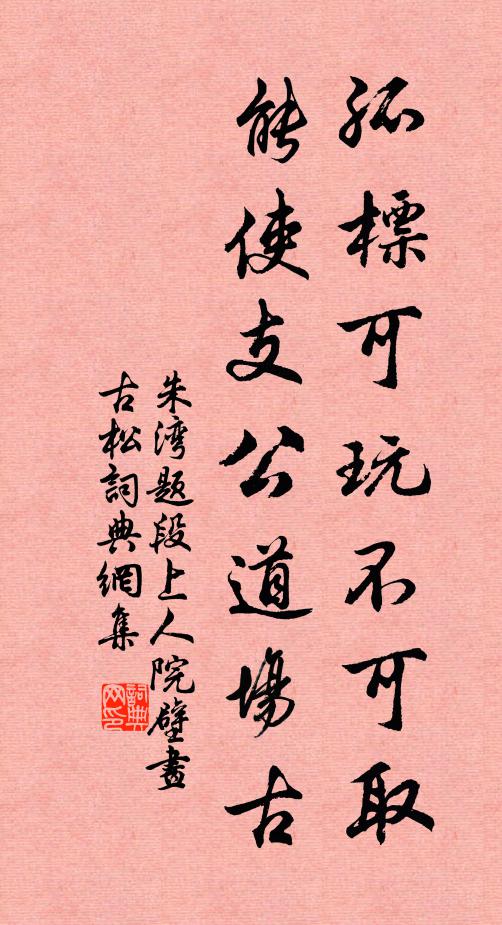 孤標可玩不可取
能使支公道場古
朱湾题段上人院壁畫
古松詞典網集
詞典网印